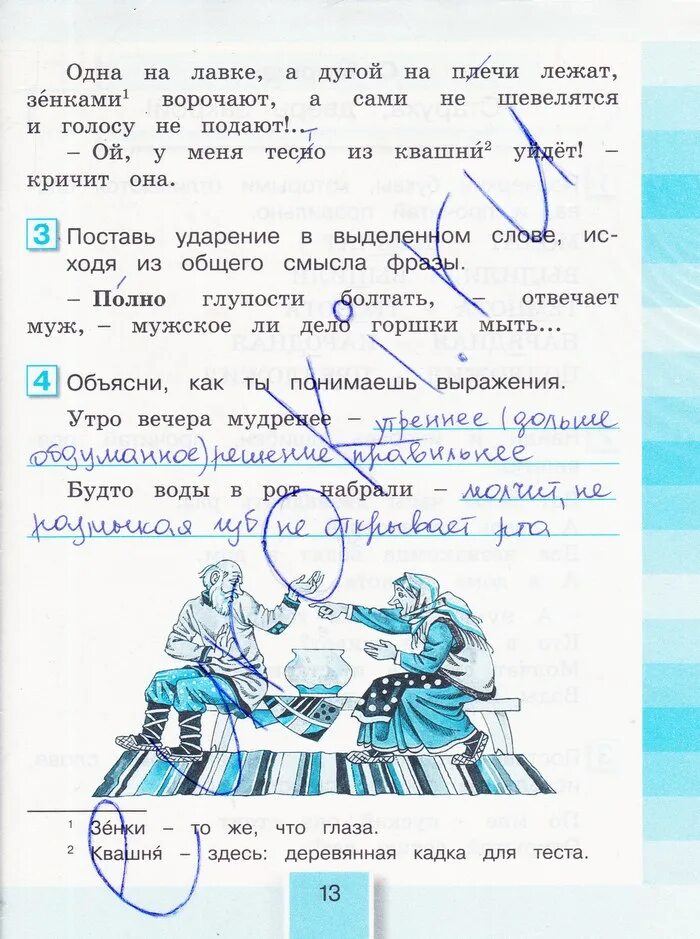 Одна на лавке, а дугой на плечи лежат,
зе́нками¹ ворочают, а сами не шевелятся
и голосу не подают!..
– Ой, у меня тесно из квашни́² уйдёт! –
кричит она.
3 Поставь ударение в выделенном слове, ис-
ходя из общего смысла фразы.
– По́лно глупости болтать, – отвечает
муж, – мужское ли дело горшки мыть...
4 Объясни, как ты понимаешь выражения.
Утро вечера мудренее – утреннее (дольше
обдуманное) решение правильнее
Будто воды в рот набрали – молчит, не
размыкая губ, не открывает рта
¹ Зе́нки – то же, что глаза.
² Квашня́ – здесь: деревянная кадка для теста.
13